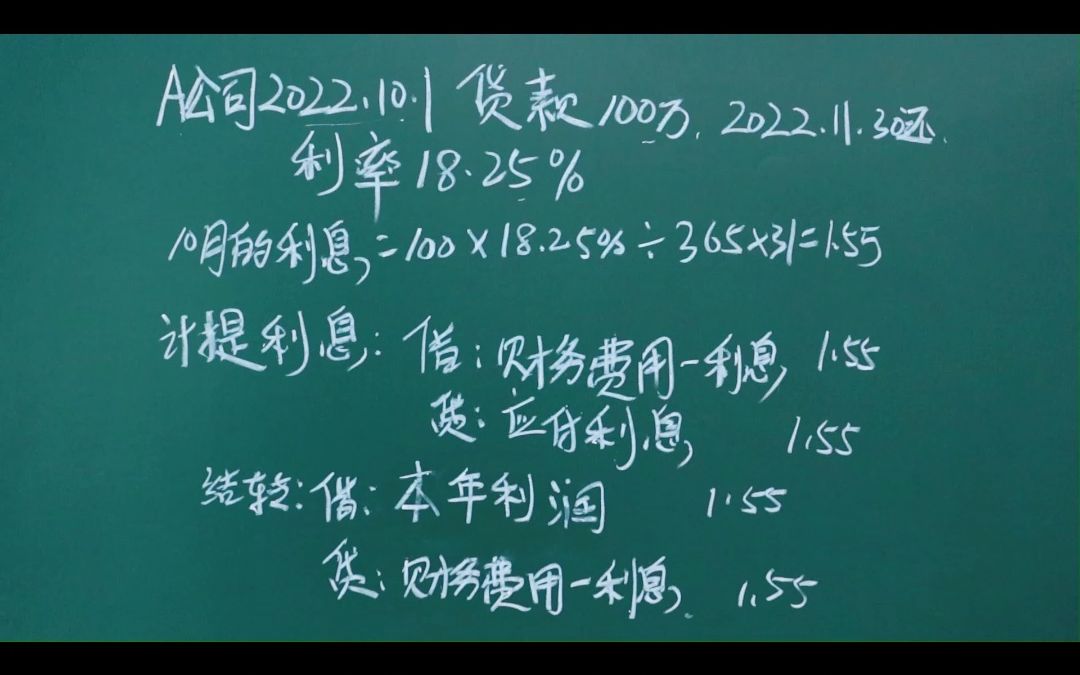 A公司2022.10.1 贷款100万, 2022.11.30还.
利率18.25%
10月的利息=100×18.25%÷365×31=1.55
计提利息: 借: 财务费用-利息 1.55
贷: 应付利息 1.55
结转: 借: 本年利润 1.55
贷: 财务费用-利息 1.55